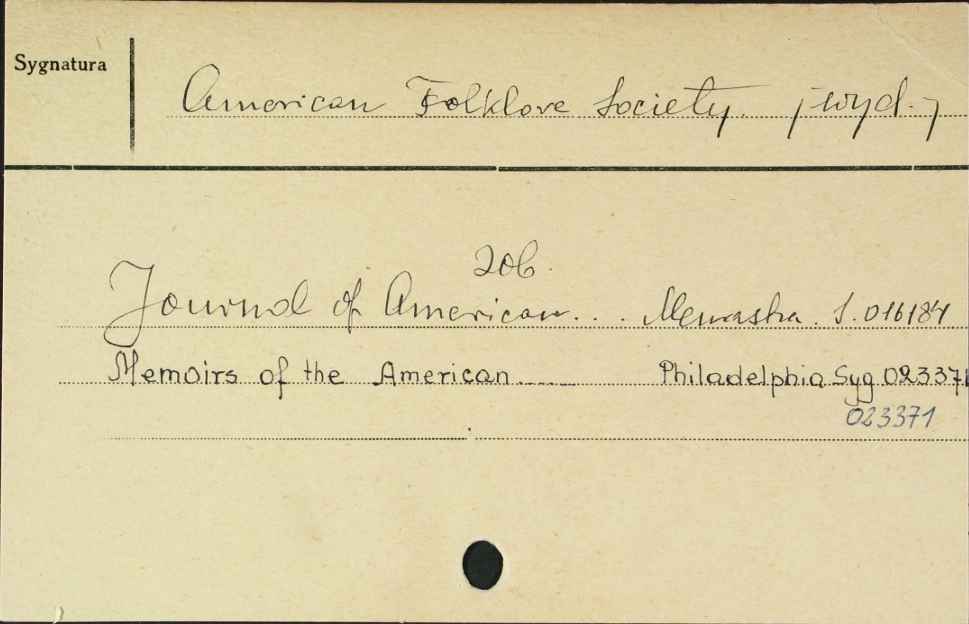 Sygnatura
American Folklore Society. /wyd./
Zob.
Journal of American... Menasha. S. 016184
Memoirs of the American...... Philadelphia Syg 023371
023371